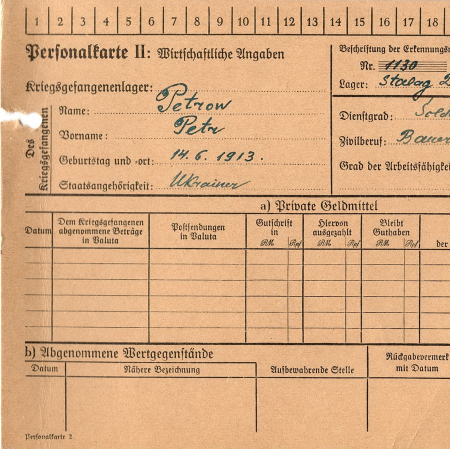 1 2 3 4 5 6 7 8 9 10 11 12 13 14 15 16 17 18
Personalkarte II: Wirtschaftliche Angaben
Beschriftung der Erkennungs
Nr. 1130
Lager: Stalag
Kriegsgefangenenlager:
Des Kriegsgefangenen
Name: Petrow
Vorname: Petr
Geburtstag und -ort: 14. 6. 1913.
Staatsangehörigkeit: Ukrainer
Dienstgrad: Sold
Zivilberuf: Bauer
Grad der Arbeitsfähigkei
a) Private Geldmittel
Datum
Dem Kriegsgefangenen abgenommene Beträge in Valuta
Postsendungen in Valuta
Gutschrift in
RM Rpf
Hiervon ausgezahlt
RM Rpf
Bleibt Guthaben
RM Rpf
der
b) Abgenommene Wertgegenstände
Datum
Nähere Bezeichnung
Aufbewahrende Stelle
Rückgabevermerk mit Datum
Personalkarte 2